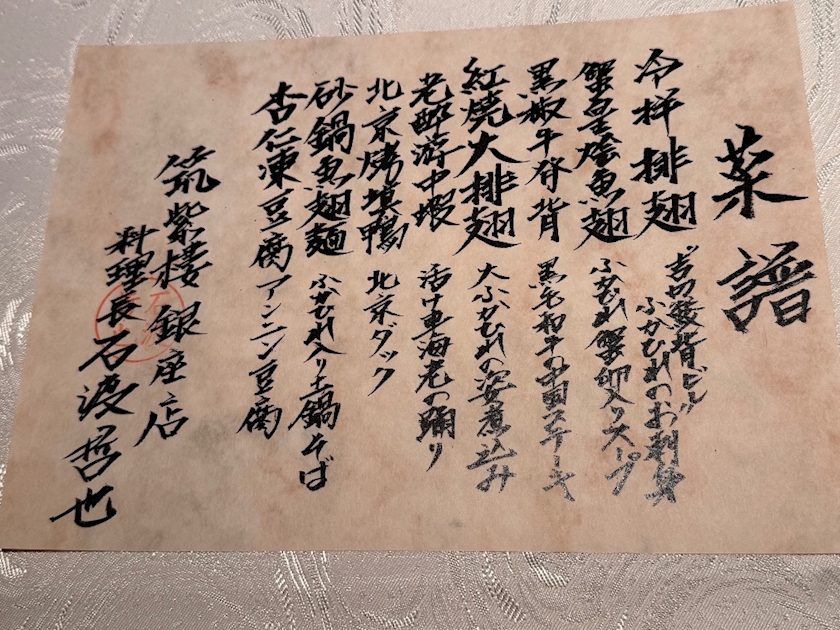 菜譜
冷拌排翅
"吉切鮫背ビレ"
ふかひれのお刺身
蟹皇燴魚翅 ふかひれ蟹卵入りスープ
黒椒牛脊背 黒毛和牛の ステーキ
紅焼大排翅 大ふかひれの姿煮込み
老酔游中蝦 活け車海老の踊り
北京烤填鴨 北京ダック
砂鍋魚翅麺 ふかひれ入り土鍋そば
杏仁凍豆腐 アンニン豆腐
筑紫樓 銀座店
料理長 石渡哲也